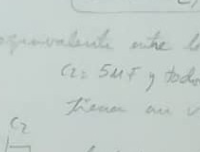 equivalente entre lo
C2 = 5MF y todo
tienen un v
C2